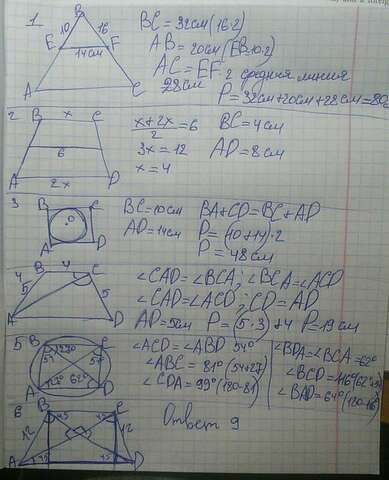 1
B
10 16
E F
14см
A C
BC = 32см (16·2)
AB = 20см (EB=10·2)
AC = EF·2 средняя линия
28см
P = 32см+20см+28см=80
2
B x C
6
A 2x D
x+2x/2 = 6
3x = 12
x = 4
BC = 4см
AD = 8см
3
B C
O
A D
BC = 10см
AD = 14см
BA+CD = BC+AD
P = (10+14)·2
P = 48см
4
B 4 C
5 5
A D
∠CAD = ∠BCA; ∠BCA = ∠ACD
∠CAD = ∠ACD; CD = AD
AD = 5см P = (5·3)+4 P = 19см
5
B C
A D
62°
∠ACD = ∠ABD 54°
∠ABC = 81° (54+27)
∠CDA = 99° (180-81)
∠BDA = ∠BCA = 62°
∠BCD = 116°
∠BAD = 64° (180-116)
6
B 45 45 C
12 12
A 45 45 D
Ответ 9